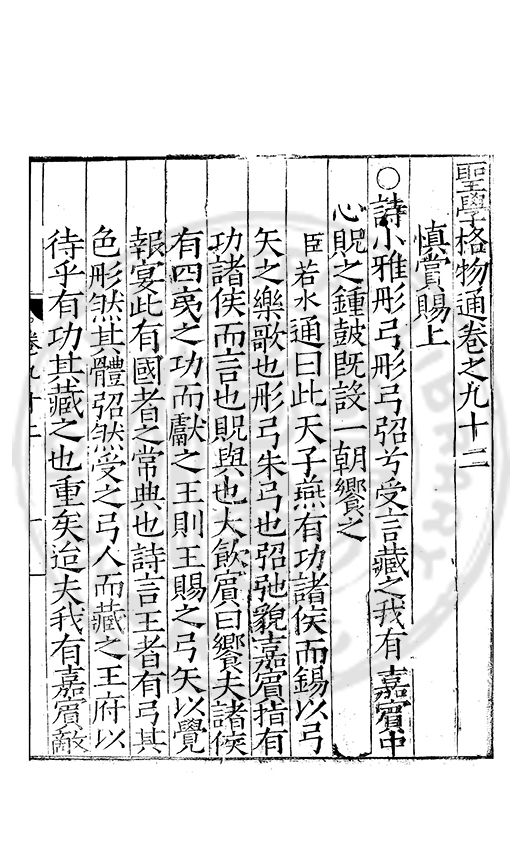 聖學格物通卷之九十二
慎賞賜上
○詩小雅彤弓彤弓弨兮受言藏之我有嘉賓中
心貺之鍾鼓旣設一朝饗之
臣若水通曰此天子燕有功諸侯而錫以弓
矢之樂歌也彤弓朱弓也弨弛貌嘉賓指有
功諸侯而言也貺與也大飮賓曰饗夫諸侯
有四夷之功而獻之王則王賜之弓矢以覺
報宴此有國者之常典也詩言王者有弓其
色彤然其體弨然受之弓人而藏之王府以
待乎有功其藏之也重矣迨夫我有嘉賓敵
卷九十二